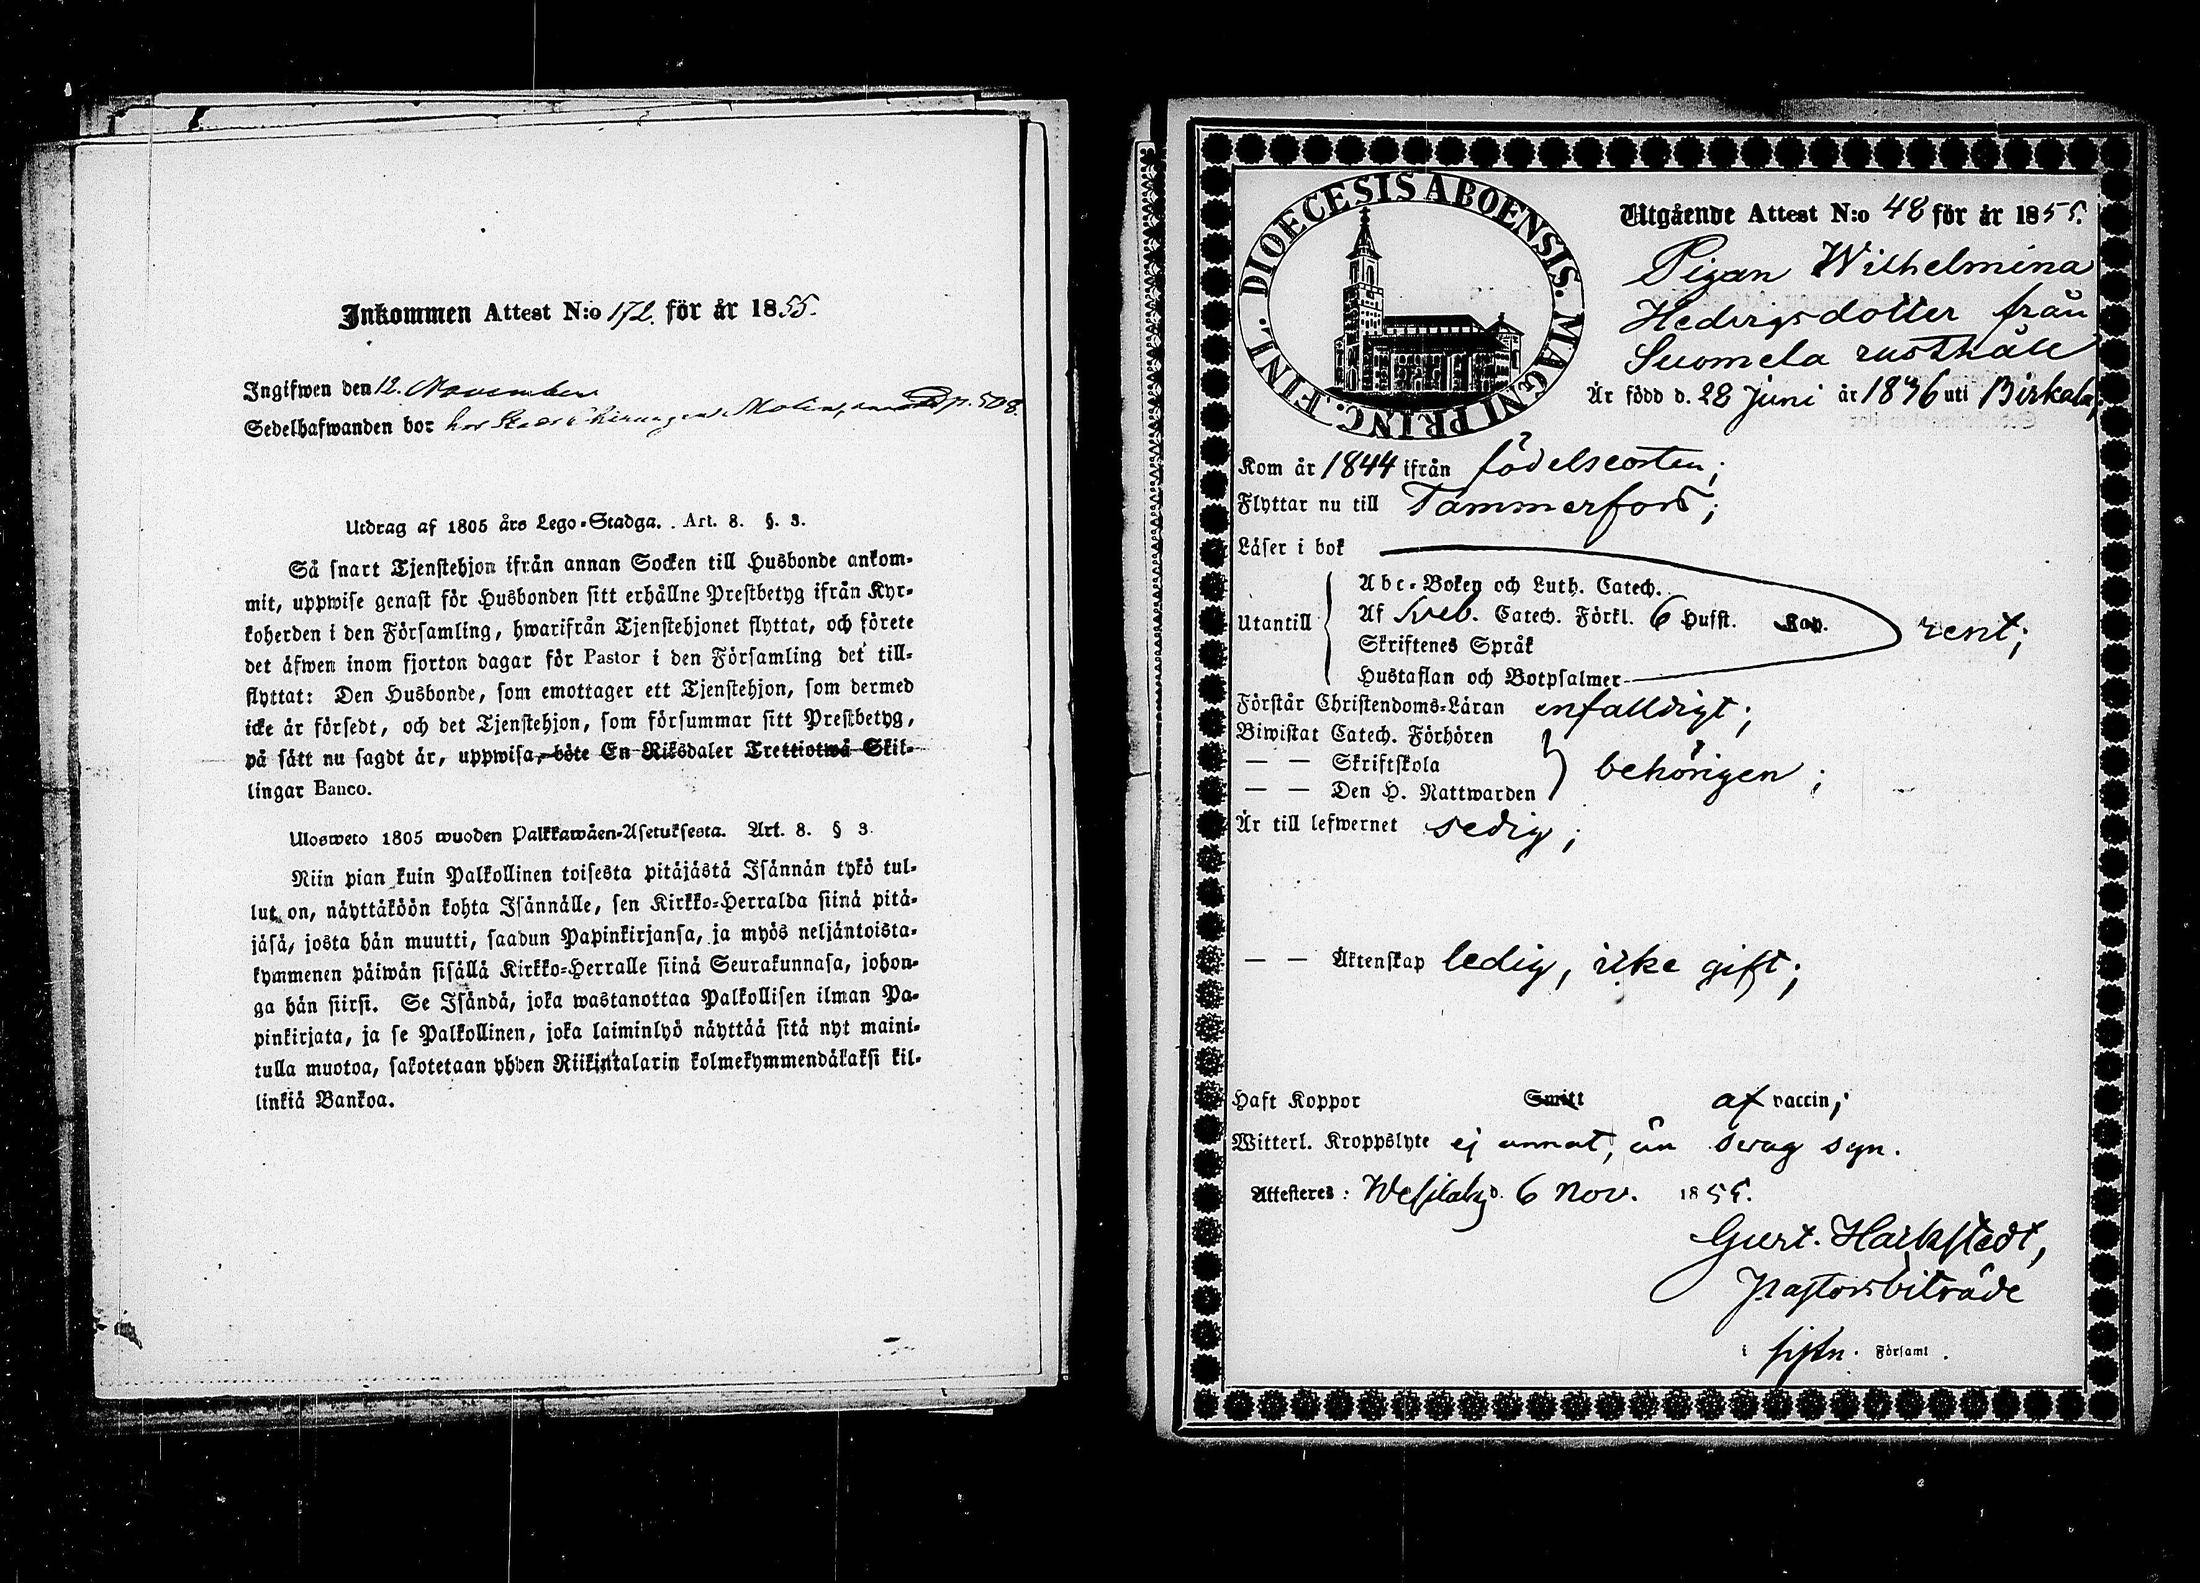 Inkommen Attest N:o 172. för år 1855.
Ingifwen den 12. November
Sedelhafwanden bor hos Stads Chirurgen Molin, p. 508.
Utdrag af 1805 års Lego-Stadga. Art. 8. §. 3.
Så snart Tjenstehjon ifrån annan Socken till Husbonde ankom-
mit, uppwise genast för Husbonden sitt erhållne Prestbetyg ifrån Kyr-
koherden i den Församling, hwarifrån Tjenstehjonet flyttat, och förete
det äfwen inom fjorton dagar för Pastor i den Församling det till-
flyttat: Den Husbonde, som emottager ett Tjenstehjon, som dermed
icke är försedt, och det Tjenstehjon, som försummar sitt Prestbetyg,
på sätt nu sagdt är, uppwisa, böte En Riksdaler Trettiotwå Skil-
lingar Banco.
Ulosweto 1805 wuoden Palkkawäen-Asetuksesta. Art. 8. § 3.
Niin pian kuin Palkollinen toisesta pitäjästä Isännän tykö tul-
lut on, näyttäköön kohta Isännälle, sen Kirkko-Herralda siinä pitä-
jäsä, josta hän muutti, saadun Papinkirjansa, ja myös neljäntoista-
kymmenen päiwän sisällä Kirkko-Herralle siinä Seurakunnasa, johon-
ga hän siirsi. Se Isändä, joka wastanottaa Palkollisen ilman Pa-
pinkirjata, ja se Palkollinen, joka laiminlyö näyttää sitä nyt maini-
tulla muotoa, sakotetaan yhden Riikintalarin kolmekymmendäkaksi kil-
linkiä Bankoa.
DIOECESIS ABOENSIS. MAGNI PRINC. FINL.
Utgående Attest N:o 48 för år 1855.
Pigan Wilhelmina
Hedvigsdotter från
Suomela rusthåll
Är född d. 28 Juni år 1836 uti Birkala;
Kom år 1844 ifrån födelseorten;
Flyttar nu till Tammerfors;
Läser i bok
Abc-Boken och Luth. Catech.
Utantill Af Sveb. Catech. Förkl. 6 Husst. Kap. rent;
Skriftenes Språk
Hustaflan och Botpsalmer
Förstår Christendoms-Läran enfaldigt;
Biwistat Catech. Förhören
— — Skriftskola behörigen;
— — Den H. Nattwarden
Är till lefwernet sedig;
— — Äktenskap ledig, icke gift;
Haft Koppor Smitt af vaccin;
Witterl. Kroppslyte ej annat, än svag syn.
Attesteras: Wesilaks d. 6 Nov. 1855.
Pastorsbiträde
i Församl.